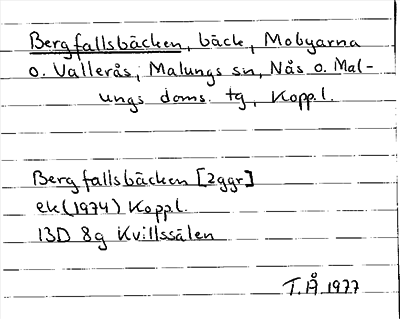 Bergfallsbäcken, bäck, Mobyarna
o. Vallerås, Malungs sn, Nås o. Mal-
ungs doms. tg, Koppl.
Bergfallsbäcken [2ggr]
ek (1974) Koppl.
13D 8g Kvillssälen
T.Å. 1977